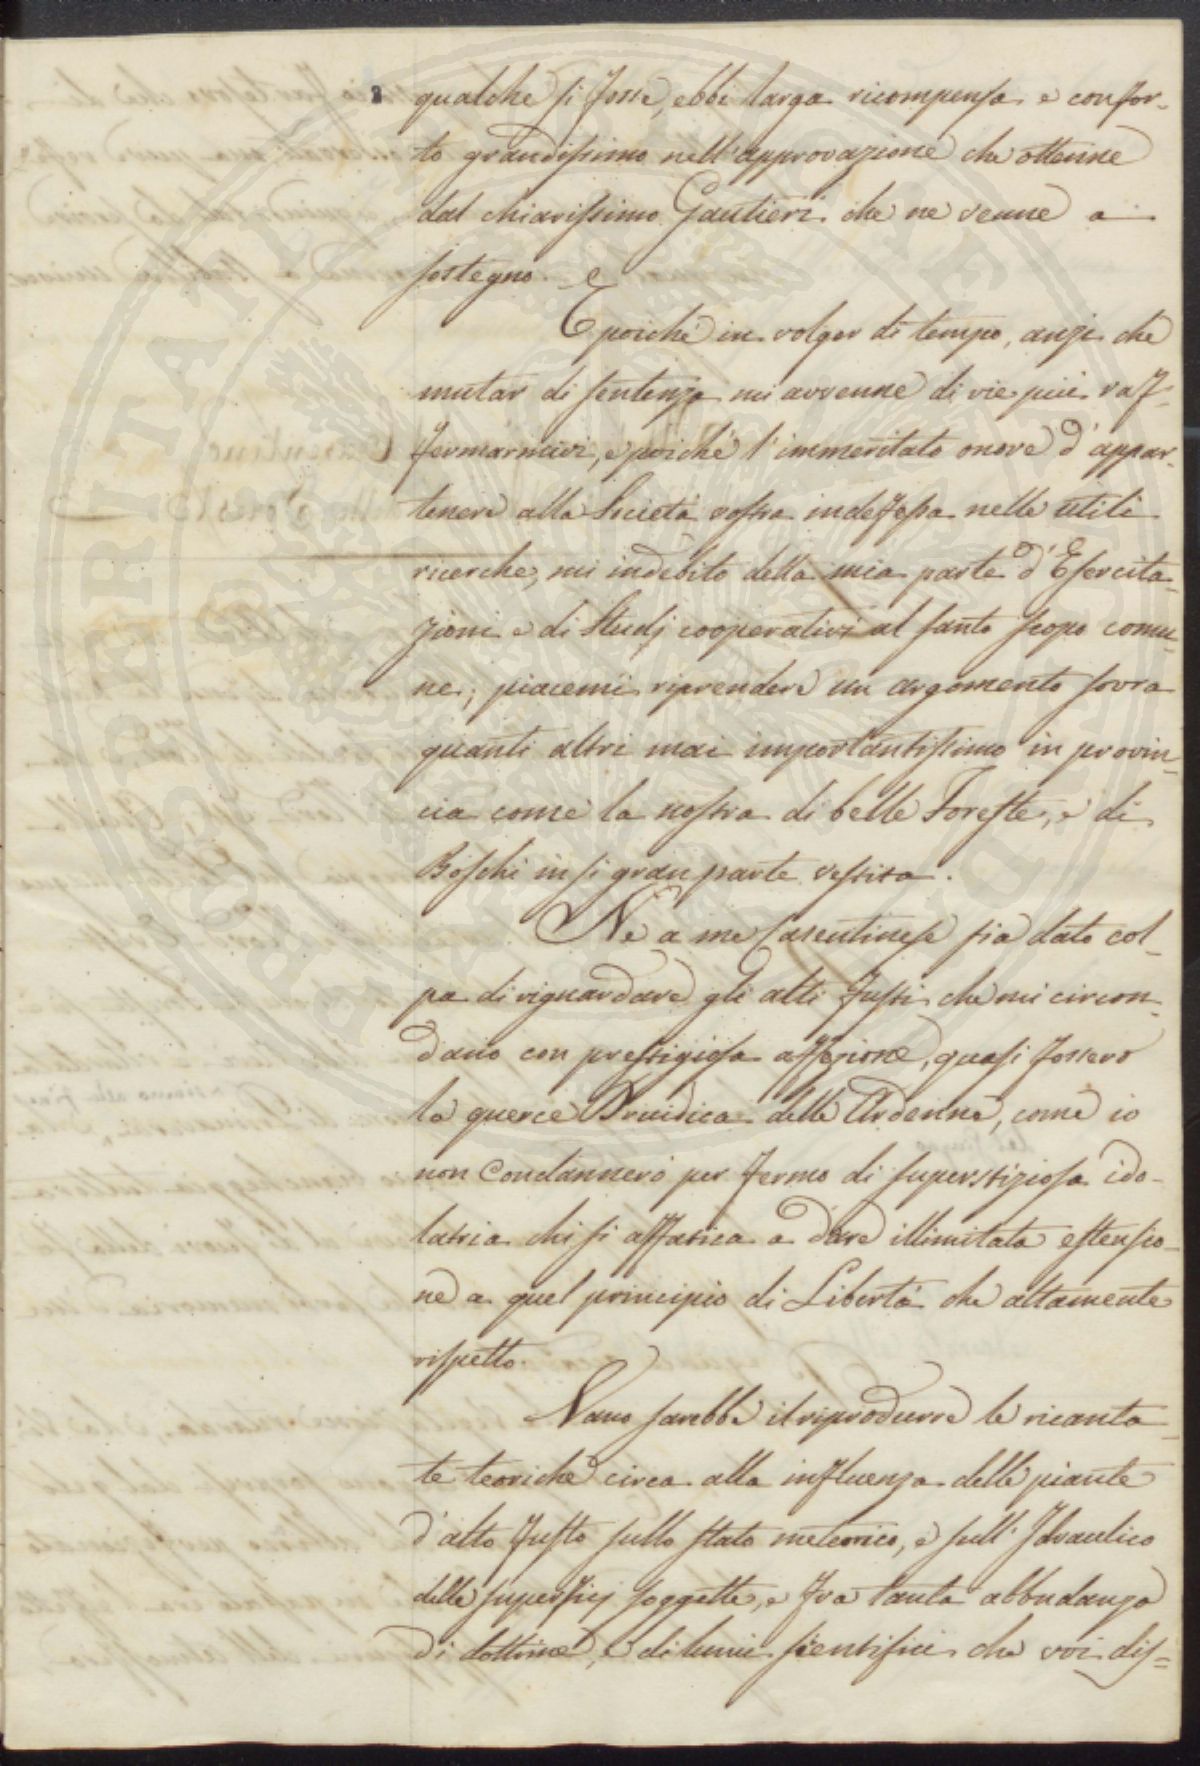 qualche si fosse, ebbi larga ricompensa e confor-
to grandissimo nell'approvazione che ottenne
dal chiarissimo Gautieri che ne venne a
sostegno.
E poiché in volger di tempo, anzi che
mutar di sentenza mi avvenne di vie più raf-
fermarmivi, e poiché l'immeritato onore d'appar-
tenere alla Società vostra indefessa nelle utili
ricerche, mi indebita della mia parte d'Esercita-
zioni e di Studj cooperativi al santo scopo comu-
ne; piacemi riprendere un argomento sovra
quanti altri mai importantissimo in provin-
cia come la nostra di belle Foreste, e di
Boschi in sì gran parte vestita.
Né a me Casentinese sia dato col-
pa di riguardare gli alti fusti che mi circon-
dano con prestigiosa affezione, quasi fossero
le querce Druidica delle Ardenne, come io
non Condannerò per fermo di superstiziosa ido-
latria chi si affatica a dare illimitata estensio-
ne a quel principio di Libertà che altamente
rispetto.
Vano sarebbe il riprodurre le ricanta-
te teoriche circa alla influenza delle piante
d'alto fusto sullo stato meteorico, e sull'Idraulico
delle superficj soggette, e fra tanta abbudanza
di dottrine, e di lumi sientifici che voi dis-
PROSPERITATI PUBLICAE AUGENDAE